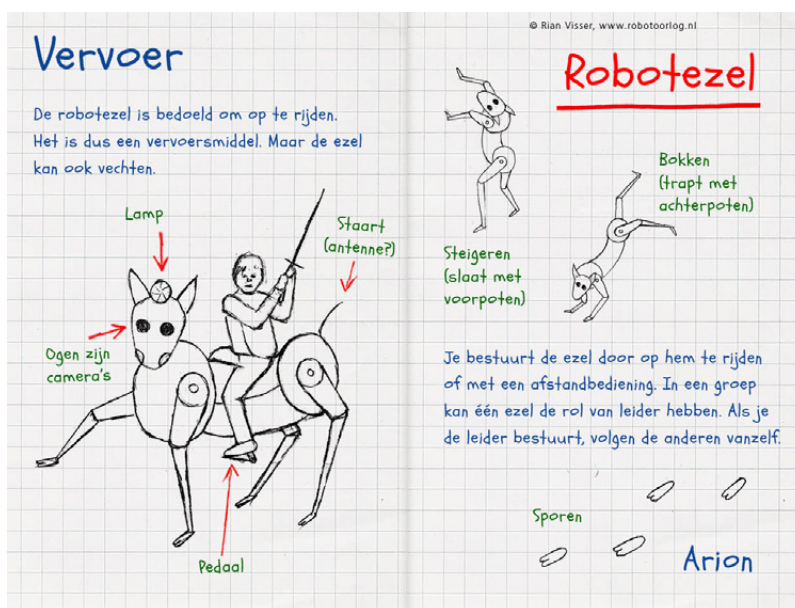 Vervoer
De robotezel is bedoeld om op te rijden.
Het is dus een vervoersmiddel. Maar de ezel
kan ook vechten.
Lamp
Staart
(antenne?)
Ogen zijn
camera's
Pedaal
© Rian Visser, www.robotoorlog.nl
Robotezel
Bokken
(trapt met
achterpoten)
Steigeren
(slaat met
voorpoten)
Je bestuurt de ezel door op hem te rijden
of met een afstandbediening. In een groep
kan één ezel de rol van leider hebben. Als je
de leider bestuurt, volgen de anderen vanzelf.
Sporen
Arion